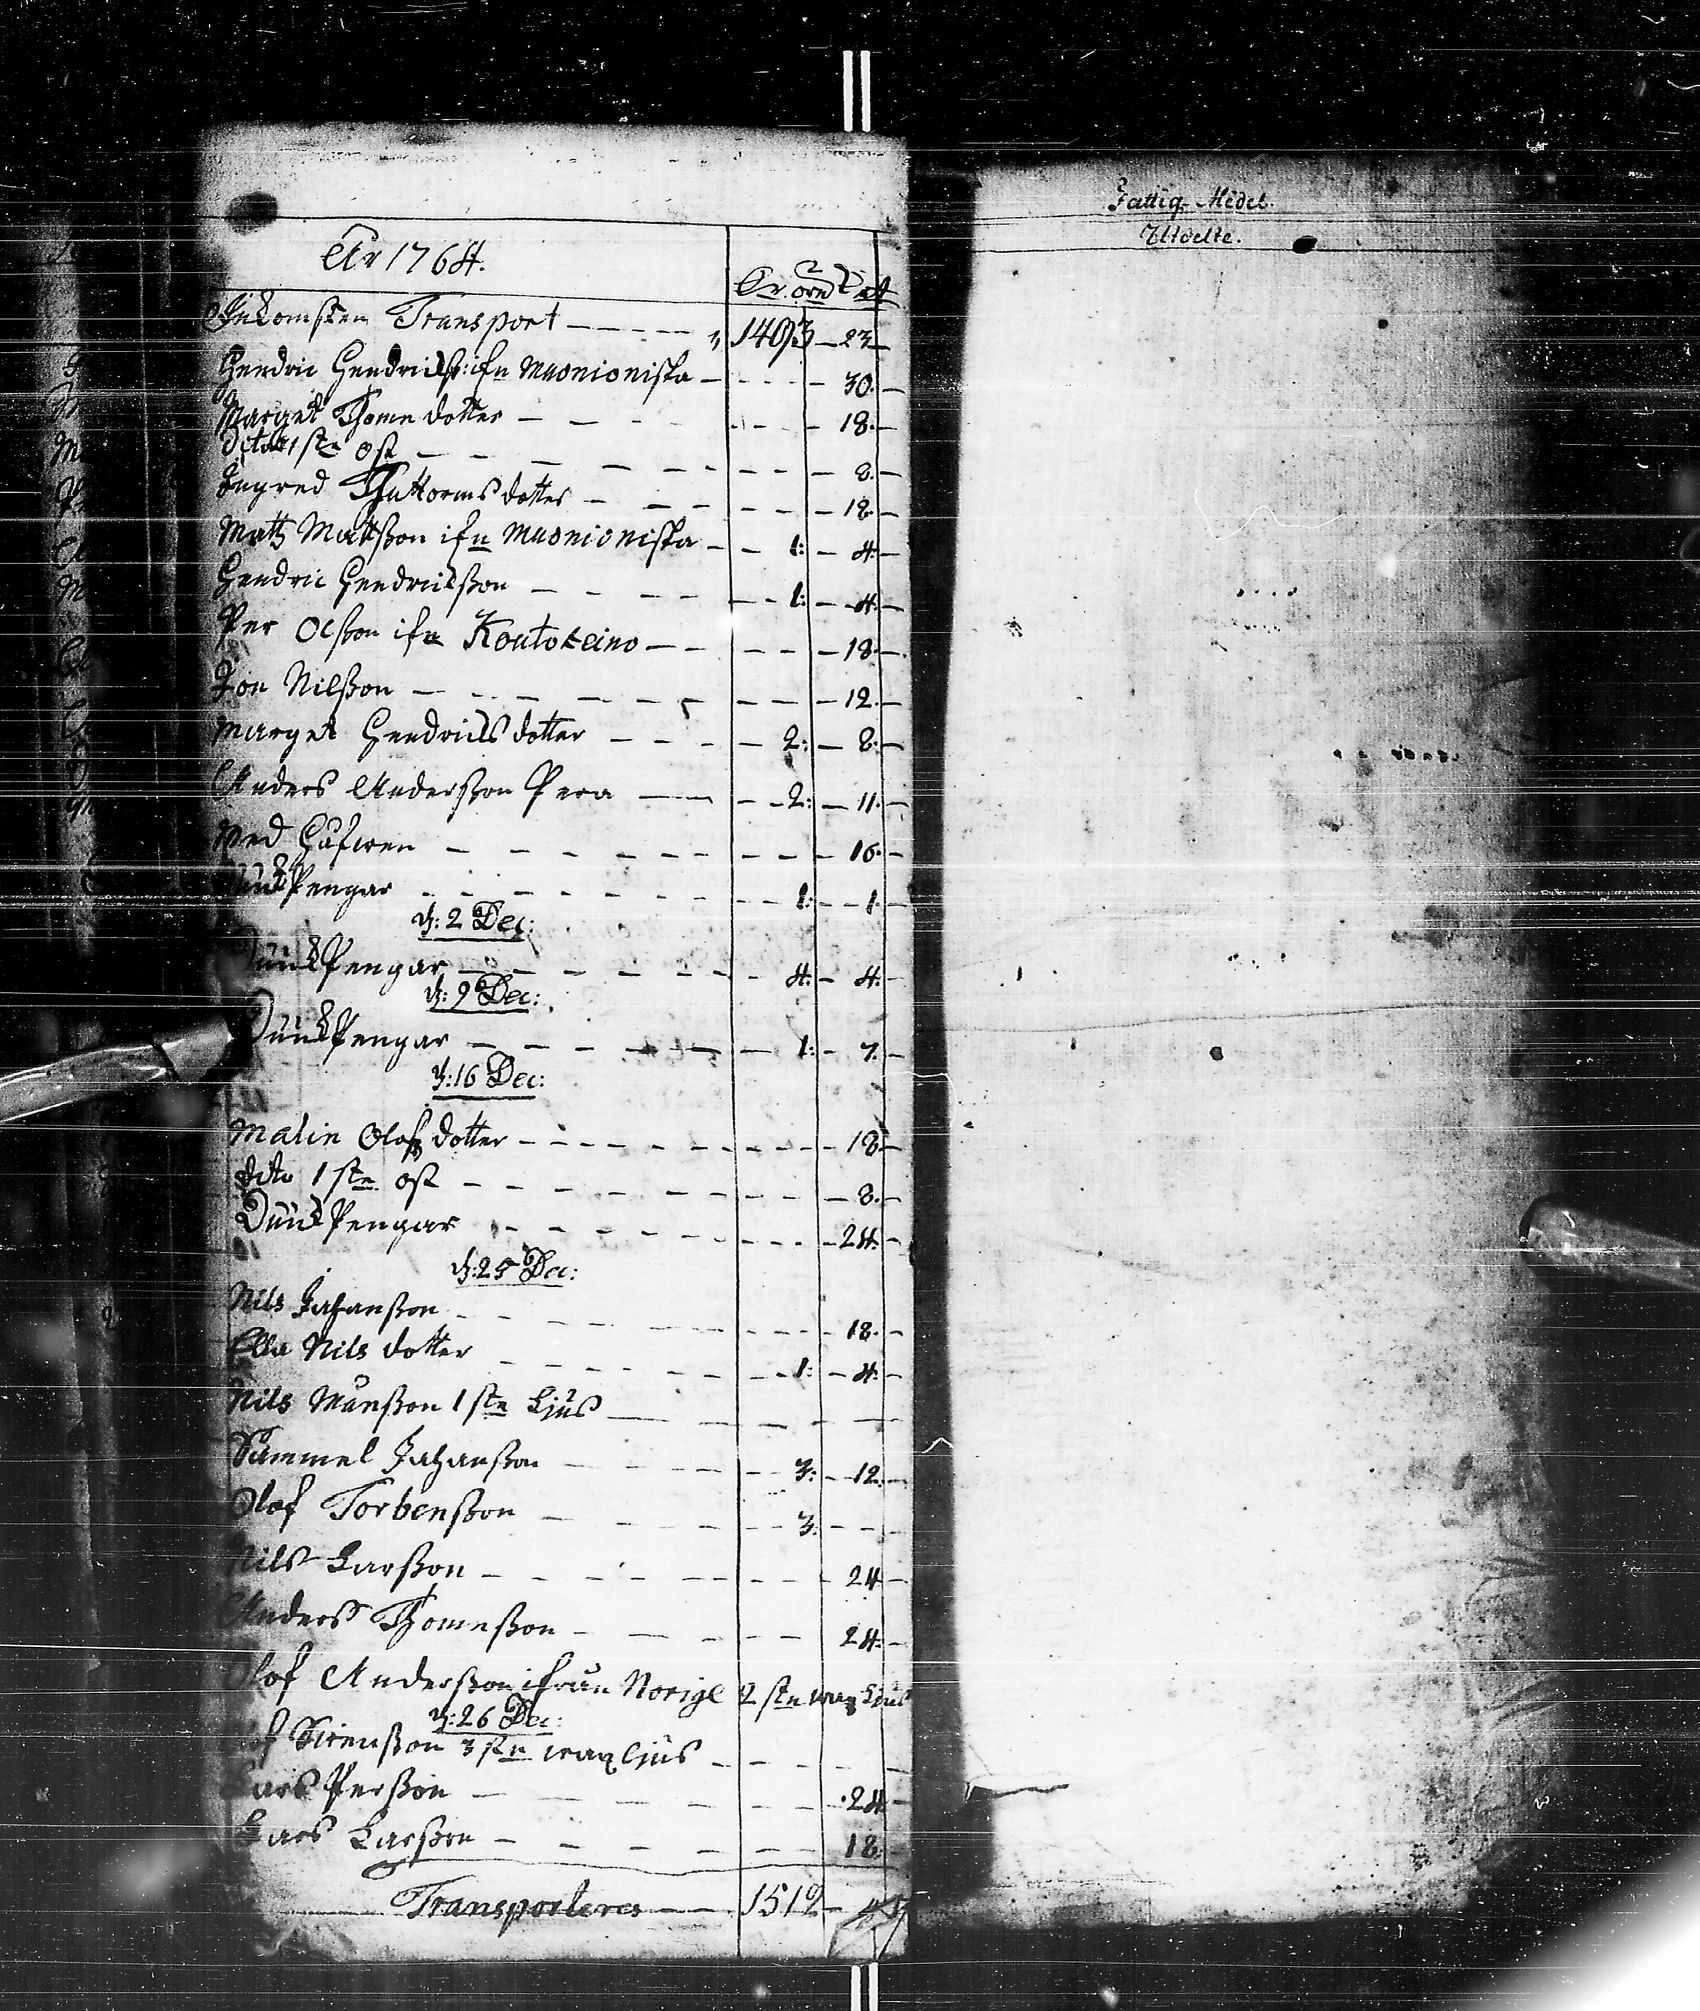 År 1764.
Inkomsten Transport 1493 23
Hendric Hendricsß: ifn Muonioniska 30.
Marget Thome dotter 18.
dito 1 stn ost 8.
Ingred Guttorms dotter 18.
Matz Matßon ifn Muonioniska 1: 4:
Hendric Hendrickßon 1: 4:
Per Olßon ifn Koutokeino 18.
Jon Nilßon 12.
Marget Hendrics dotter 2: 8:
Anders Anderßon Pera 2: 11.
Med Håfwen 16.
Pengar 1: 1.
d: 2 Dec:
Pengar 4: 4:
d: 9 Dec:
Pengar 1: 7.
d: 16 Dec:
Malin Olofs dotter 18
dito 1 stn ost 8.
Pengar 24:
d: 25 Dec:
Nils Johanßon 18.
Ella Nils dotter 1: 4:
Nils Månßon 1 stn Ljus
Sammel Johanßon 3: 12.
Olof Torbenßon 3:
Nils Larßon 24
Anders Thomeßon 24:
Olof Anderßon ifrån Norige 2 stn wax Ljus
d: 26 Dec:
Swenßon 3 stn wax ljus
Lars Perßon 24
Lars Larßon 18.
Transporteres 1512
Fattig Medel.
Utdelte.